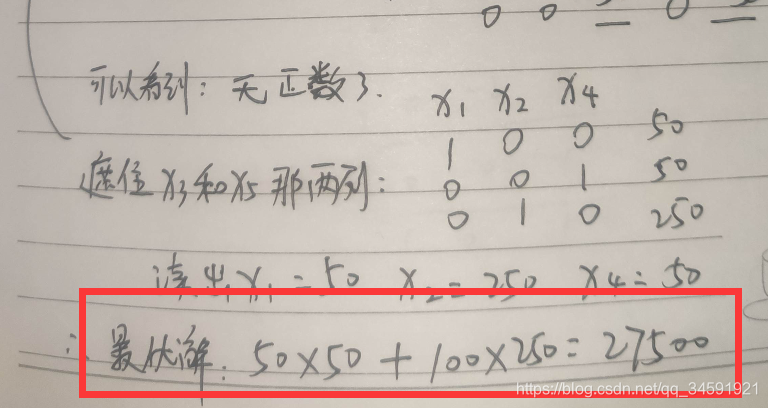 0 0 0
可以看到：无正数了.
x₁ x₂ x₄
1 0 0 50
遮住x₃和x₅那两列： 0 0 1 50
0 1 0 250
读出x₁=50 x₂=250 x₄=50
∴ 最优解：50×50+100×250=27500
https://blog.csdn.net/qq_34591921